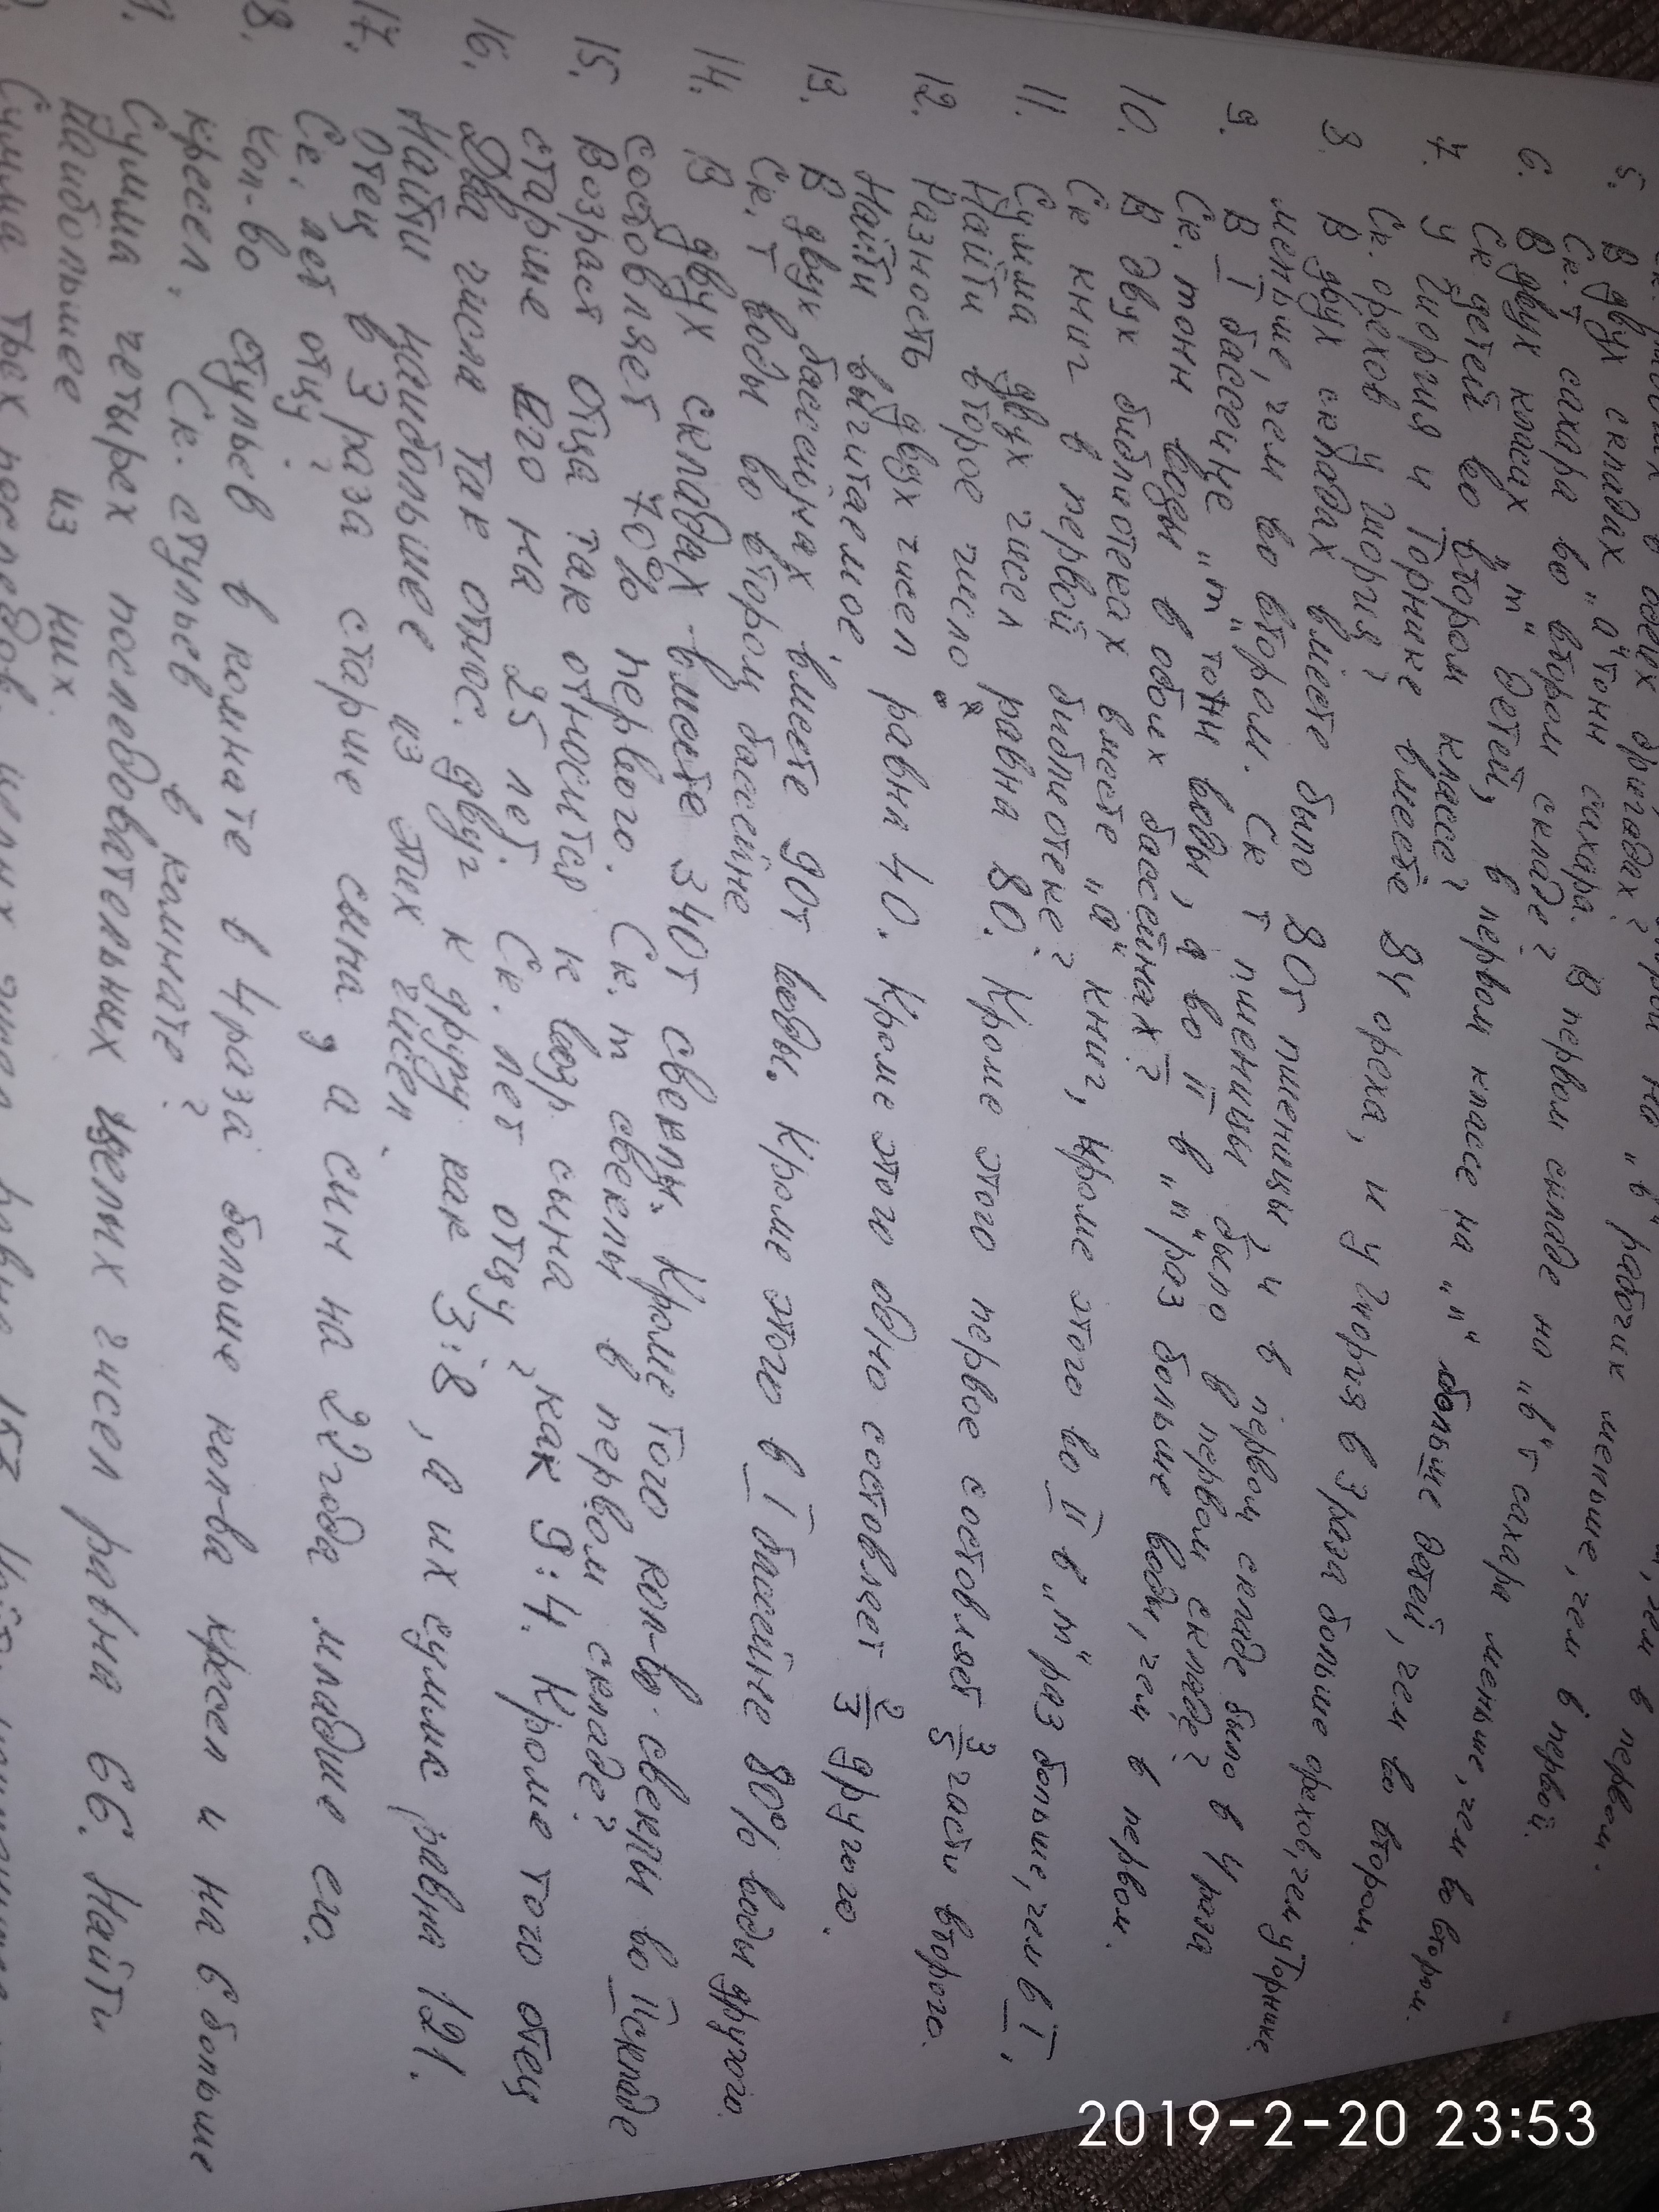 5. В двух складах „а" тонн сахара. В первом складе на „в" т сахара меньше, чем во втором.
Ск. т сахара во втором складе?
6. В двух класах „m" детей, в первом классе на „n" больше детей, чем во втором.
Ск детей во втором классе?
7. У Гиоргия и Торнике вместе 84 ореха, и у Гиоргия в 3 раза больше орехов, чем у Торнике.
Ск. орехов у Гиоргия?
8. В двух складах вместе было 80т пшеницы, и в первом складе было в 4 раза
меньше, чем во втором. Ск т пшеницы было в первом складе?
9. В I бассейне „m" тонн воды, а во II в „n" раз больше воды, чем в первом.
Ск. тонн воды в обоих бассейнах?
10. В двух библиотеках вместе „а" книг, кроме этого во II в „m" раз больше, чем в I,
Ск книг в первой библиотеке?
11. Сумма двух чисел равна 80. Кроме этого первое составляет 3/5 части второго.
Найти второе число.
12. Разность двух чисел равна 40. Кроме этого одно составляет 2/3 другого.
Найти вычитаемое.
13. В двух бассейнах вместе 90т воды. Кроме этого в I бассейне 80% воды другого.
Ск. т воды во втором бассейне
14. В двух складах вместе 340т свеклы. Кроме того кол-во свеклы во II складе
составляет 70% первого. Ск. т свеклы в первом складе?
15. Возраст отца так относится к возр сына, как 9:4. Кроме того отец
старше его на 25 лет. Ск. лет отцу?
16. Два числа так относ. друг к другу как 3:8, а их сумма равна 121.
Найти наибольшее из этих чисел.
17. Отец в 3 раза старше сына, а сын на 22 года младше его.
Ск. лет отцу?
8. Кол-во стульев в комнате в 4 раза больше кол-ва кресел и на 6 больше
кресел. Ск. стульев в комнате?
Сумма четырех последовательных целых чисел равна 66. Найти
наибольшее из них.
Сумма трех последов. целых чисел равна